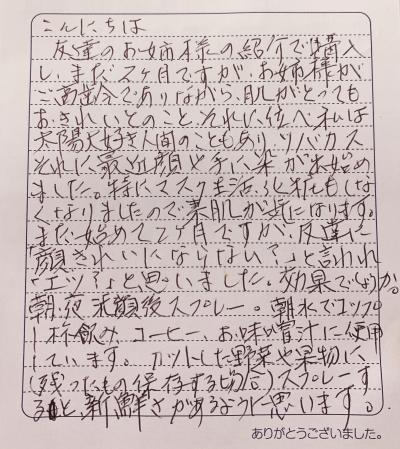 こんにちは
友達のお姉様の紹介で購入
し、まだ2ヶ月ですが、お姉様が
ご高齢でありながら、肌がとっても
おきれいとのこと、それに比べ私は
太陽大好き人間のこともあり、ソバカス
それに最近顔や手にシミが出始め
ました。特にマスク生活、化粧もしな
くなりましたので素肌が気になります。
まだ始めて2ヶ月ですが、友達に
「顔きれいになりない?」と言われ
「エッ?」と思いました。効果でしょうか。
朝、夜 洗顔後スプレー。朝水でコップ
1杯飲み、コーヒー、お味噌汁に使用
しています。カットした野菜や果物に
(残ったもの保存する場合)スプレーす
ると、新鮮さがあるように思います。
ありがとうございました。